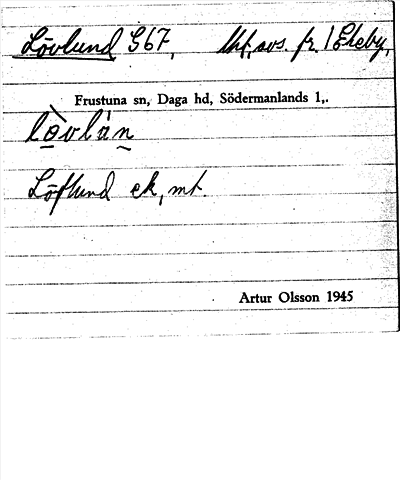 Lövlund S67, lht, avs. fr. 1 Ekeby,
Frustuna sn, Daga hd, Södermanlands l,.
lòvlán
Löflund ek, mt.
Artur Olsson 1945